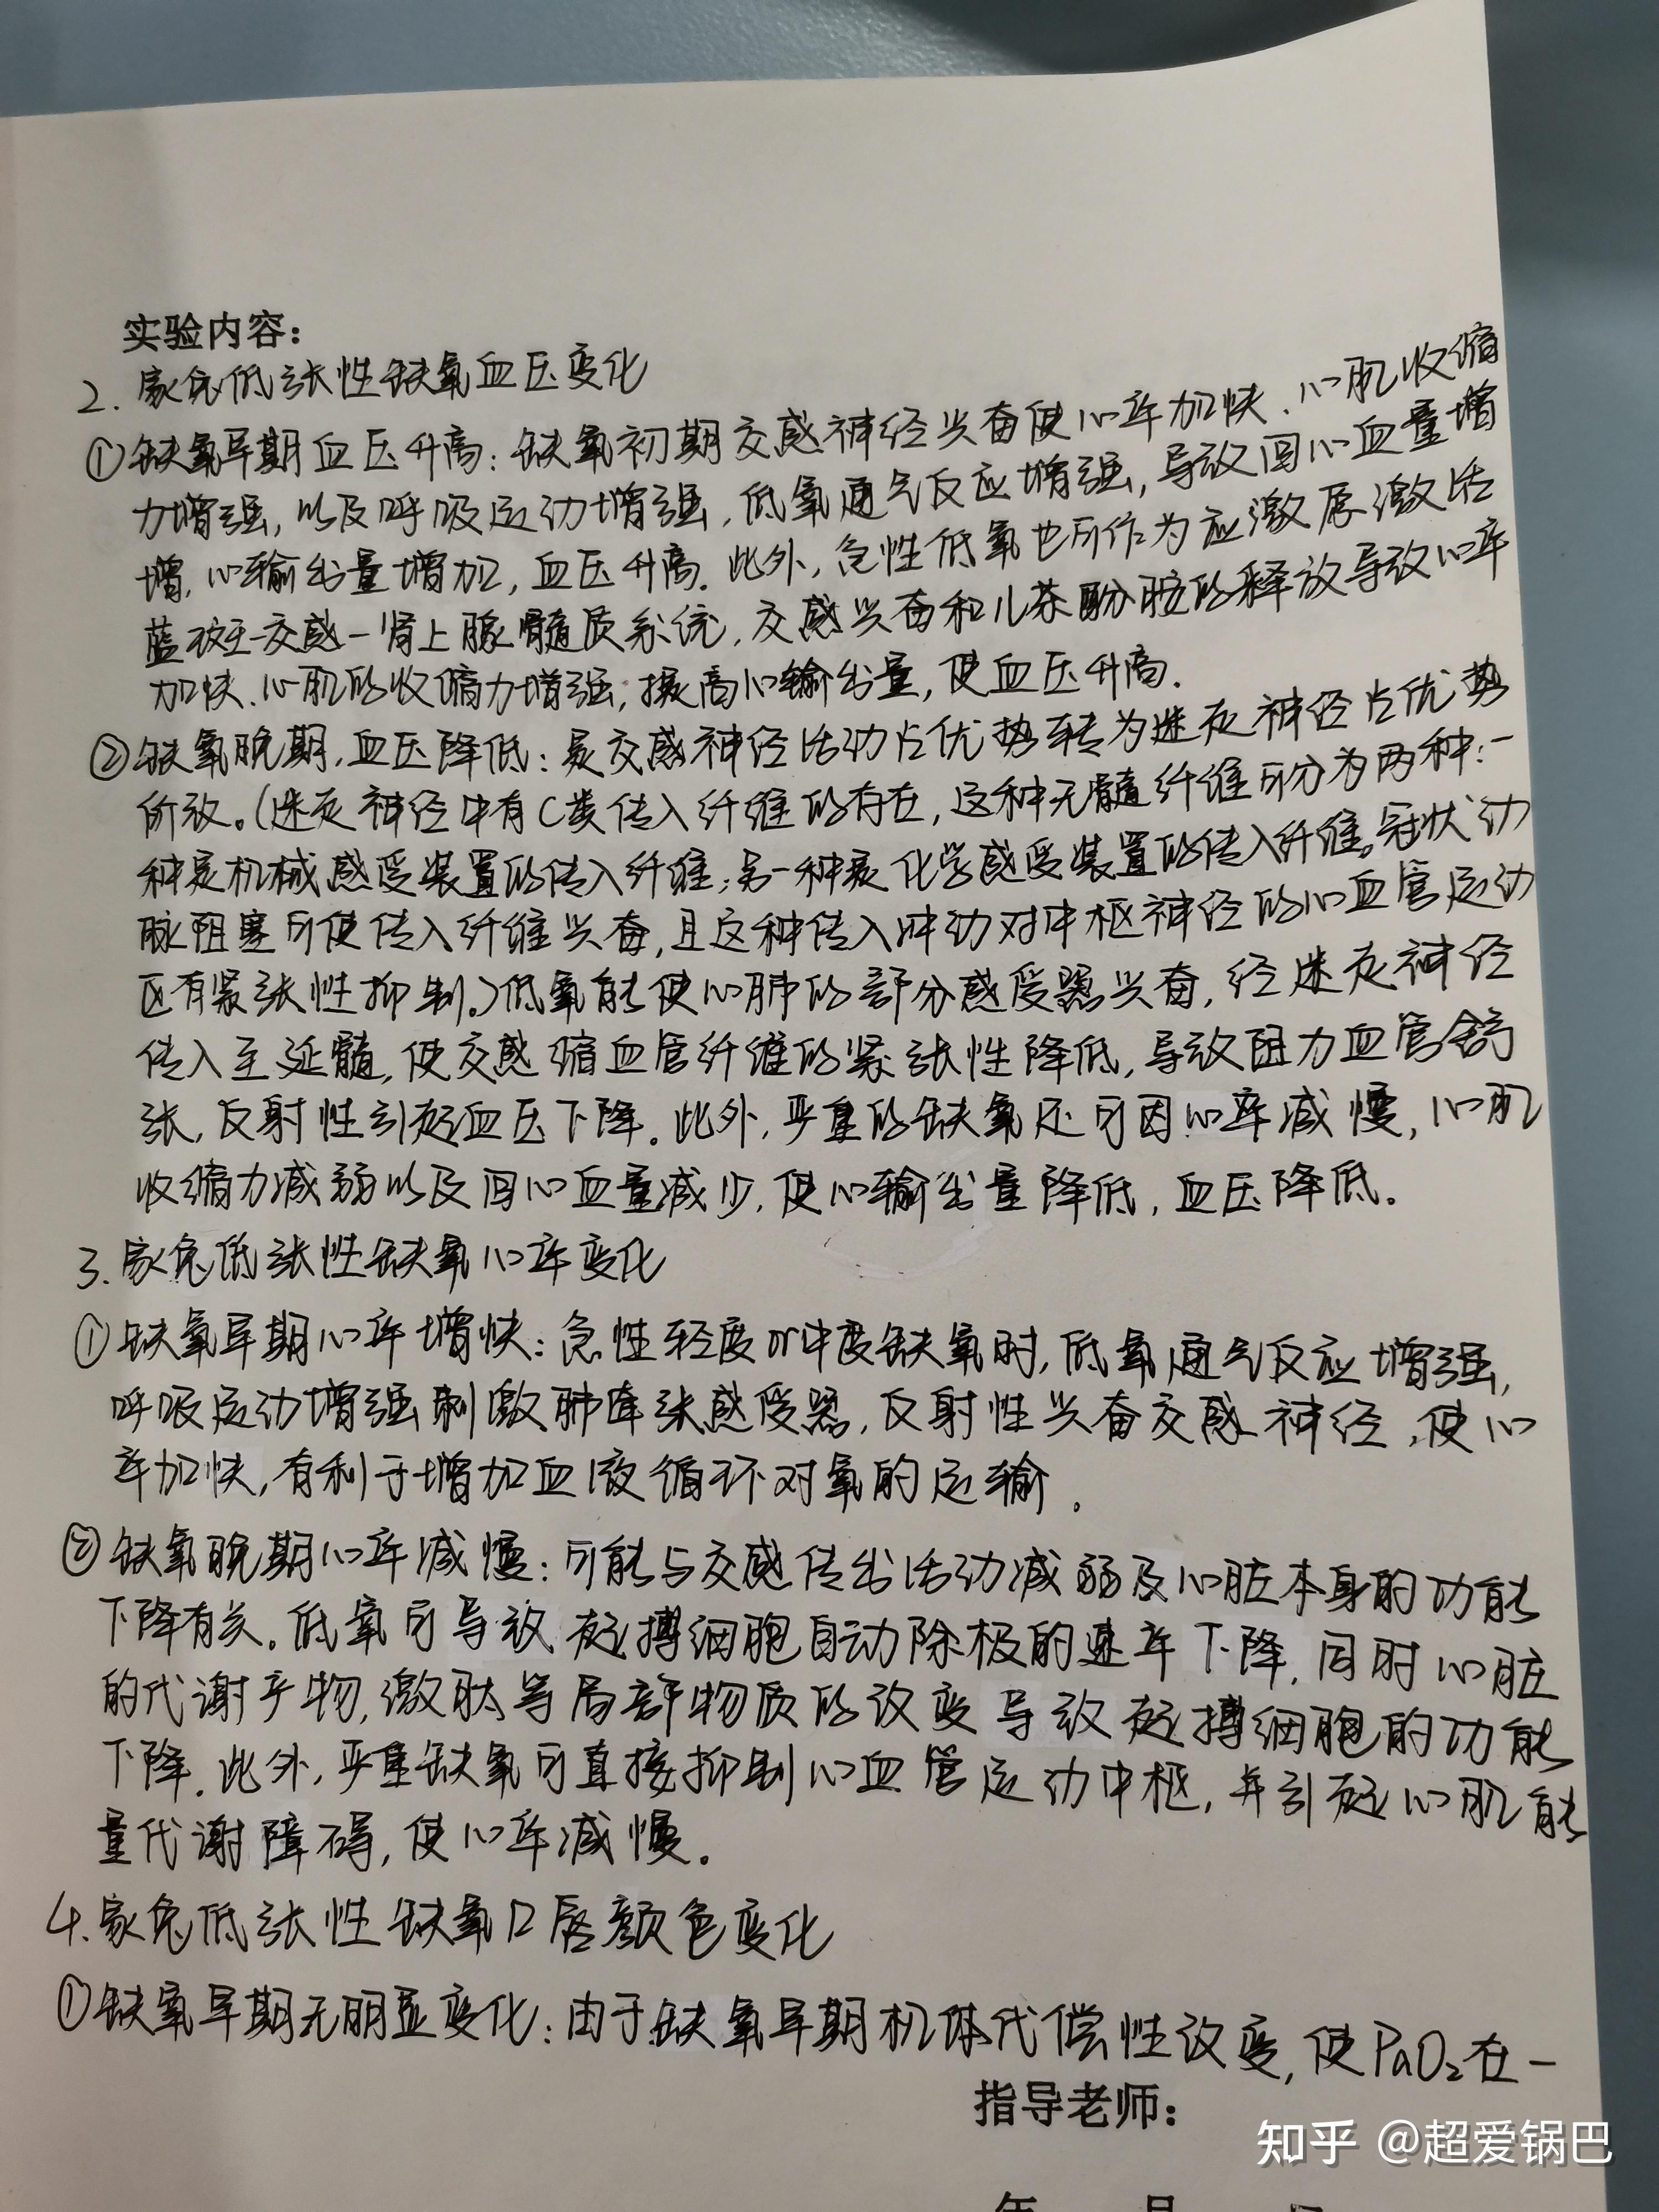 实验内容：
2. 家兔低张性缺氧血压变化
①缺氧早期血压升高：缺氧初期交感神经兴奋使心率加快、心肌收缩
力增强，以及呼吸运动增强，低氧通气反应增强，导致回心血量增
增，心输出量增加，血压升高．此外，急性低氧也可作为应激原激活
蓝斑-交感-肾上腺髓质系统，交感兴奋和儿茶酚胺的释放导致心率
加快、心肌的收缩力增强；提高心输出量，使血压升高．
②缺氧晚期，血压降低：是交感神经活动占优势转为迷走神经占优势
所致。(迷走神经中有C类传入纤维的存在，这种无髓纤维可分为两种：一
种是机械感受装置的传入纤维；另一种是化学感受装置的传入纤维。冠状动
脉阻塞可使传入纤维兴奋，且这种传入冲动对中枢神经的心血管运动
区有紧张性抑制。)低氧能使心肺的部分感受器兴奋，经迷走神经
传入至延髓，使交感缩血管纤维的紧张性降低，导致阻力血管舒
张，反射性引起血压下降．此外，严重的缺氧还可因心率减慢，心肌
收缩力减弱以及回心血量减少，使心输出量降低，血压降低．
3. 家兔低张性缺氧心率变化
①缺氧早期心率增快：急性轻度or中度缺氧时，低氧通气反应增强，
呼吸运动增强刺激肺牵张感受器，反射性兴奋交感神经，使心
率加快，有利于增加血液循环对氧的运输．
②缺氧晚期心率减慢：可能与交感传出活动减弱及心脏本身的功能
下降有关。低氧可导致起搏细胞自动除极的速率下降，同时心脏
的代谢产物，激肽等局部物质的改变导致起搏细胞的功能
下降．此外，严重缺氧可直接抑制心血管运动中枢，并引起心肌能
量代谢障碍，使心率减慢。
4. 家兔低张性缺氧口唇颜色变化
①缺氧早期无明显变化：由于缺氧早期机体代偿性改变，使PaO₂在一
指导老师：
知乎 @超爱锅巴
年 月